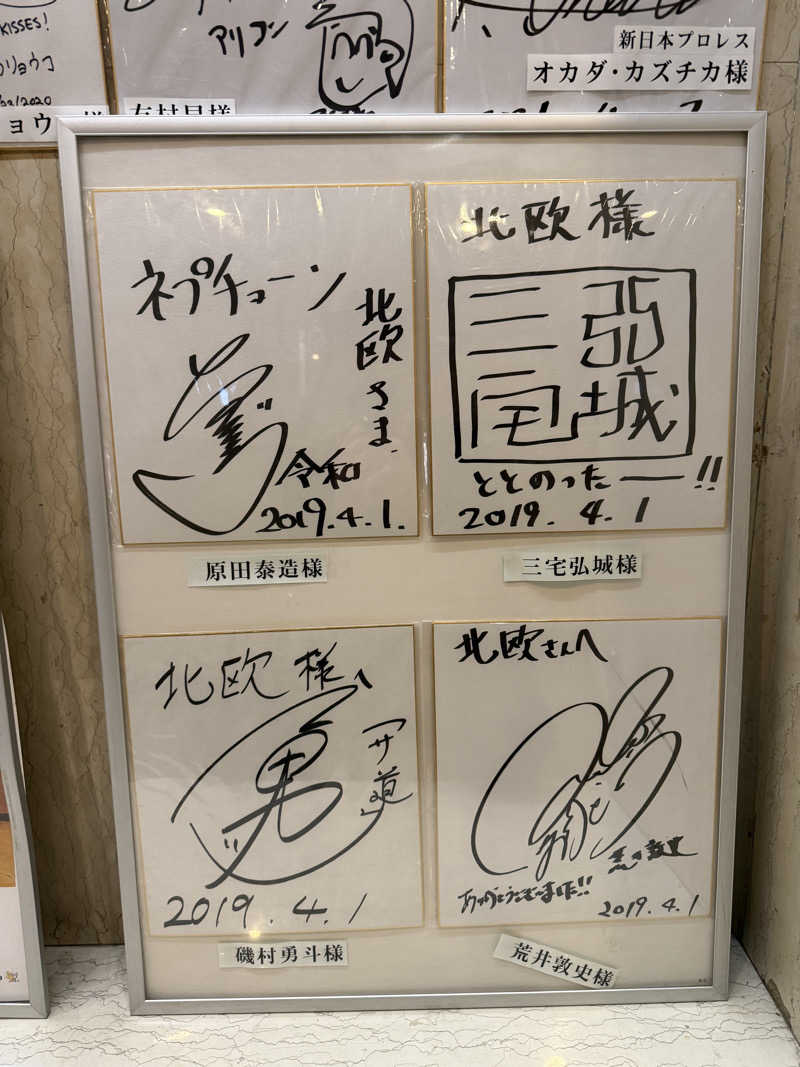 KISSES!
リョウコ
/2020
ョウ
アリゴン
有村昆様
新日本プロレス
オカダ・カズチカ様
ネプチューン
北欧さま
令和
2019.4.1.
原田泰造様
北欧様
三宅
弘城
ととのったー!!
2019. 4. 1
三宅弘城様
北欧様へ
勇
「サ道」
2019. 4. 1
磯村勇斗様
北欧さんへ
荒井敦史
ありがとうございました!!
2019. 4. 1
荒井敦史様